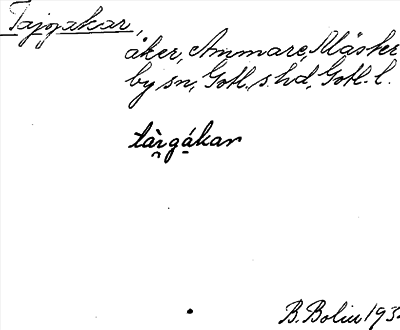 Tajgakar,
åker, Ammare, Mäster
by sn, Gotl. s. hd, Gotl. l.
tàrgákar
B. Bolin 193